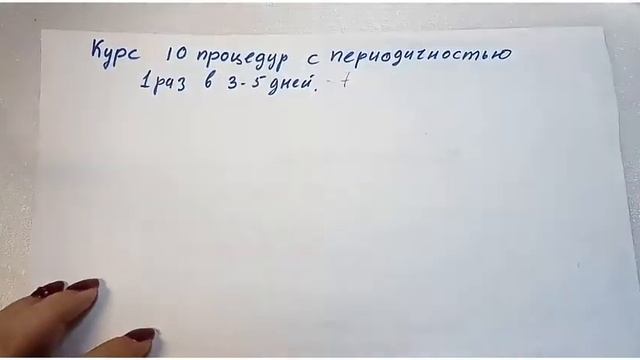 Курс 10 процедур с периодичностью
1 раз в 3-5 дней. - +